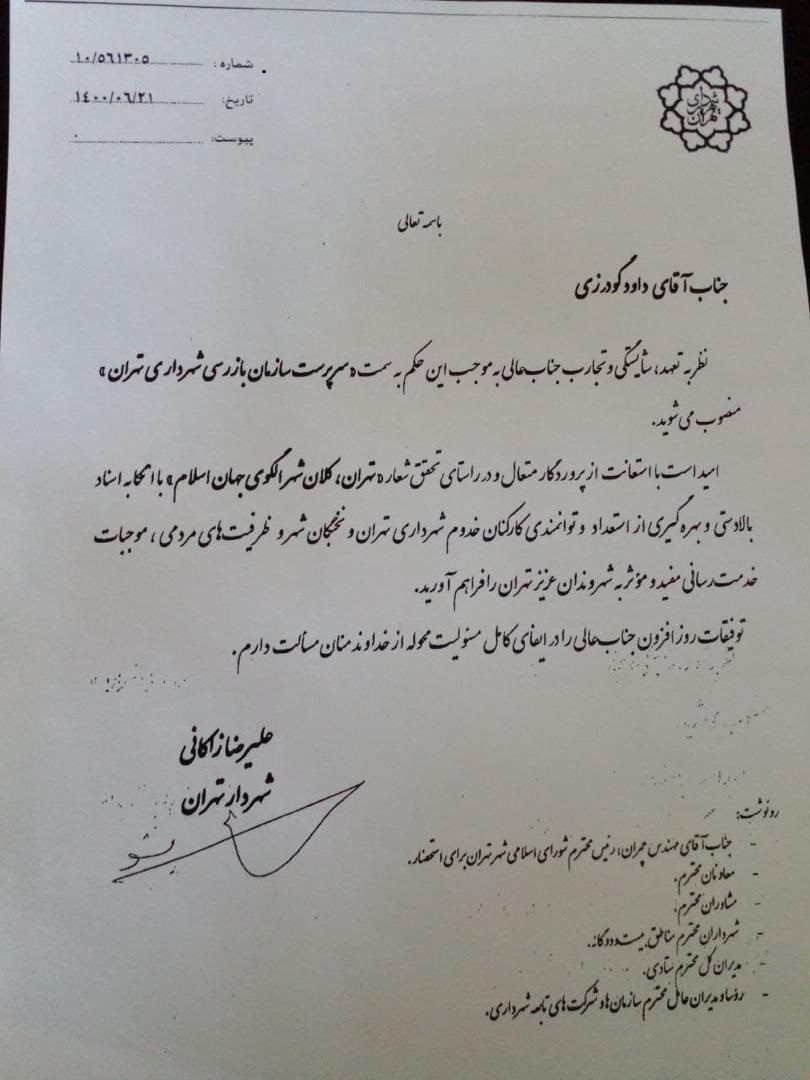 شماره: ۱۰/۵۶۱۳۰۵
تاریخ: ۱۴۰۰/۰۶/۲۱
پیوست: ۰
شهرداری تهران
باسمه تعالی
جناب آقای داود گودرزی
نظر به تعهد، شایستگی و تجارب جنابعالی به موجب این حکم به سمت «سرپرست سازمان بازرسی شهرداری تهران»
منصوب می شوید.
امید است با استعانت از پروردگار متعال و در راستای تحقق شعار «تهران، کلان شهر الگوی جهان اسلام» با اتکا به اسناد
بالادستی و بهره گیری از استعداد و توانمندی کارکنان خدوم شهرداری تهران و نخبگان شهر و ظرفیت های مردمی، موجبات
خدمت رسانی مفید و مؤثر به شهروندان عزیز تهران را فراهم آورید.
توفیقات روز افزون جنابعالی را در ایفای کامل مسئولیت محوله از خداوند منان مسألت دارم.
علیرضا زاکانی
شهردار تهران
رونوشت:
- جناب آقای مهندس چمران، رئیس محترم شورای اسلامی شهر تهران برای استحضار.
- معاونان محترم.
- مشاوران محترم.
- شهرداران محترم مناطق بیست و دوگانه.
- مدیران کل محترم ستادی.
- رؤسا و مدیران عامل محترم سازمان ها و شرکت های تابعه شهرداری.